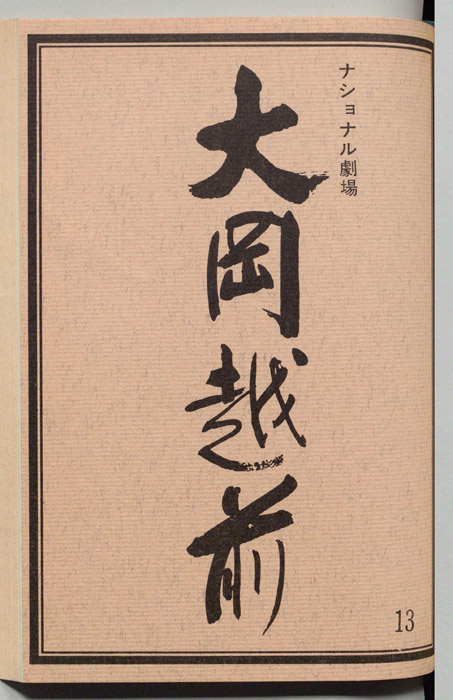 ナショナル劇場
大岡越前
13